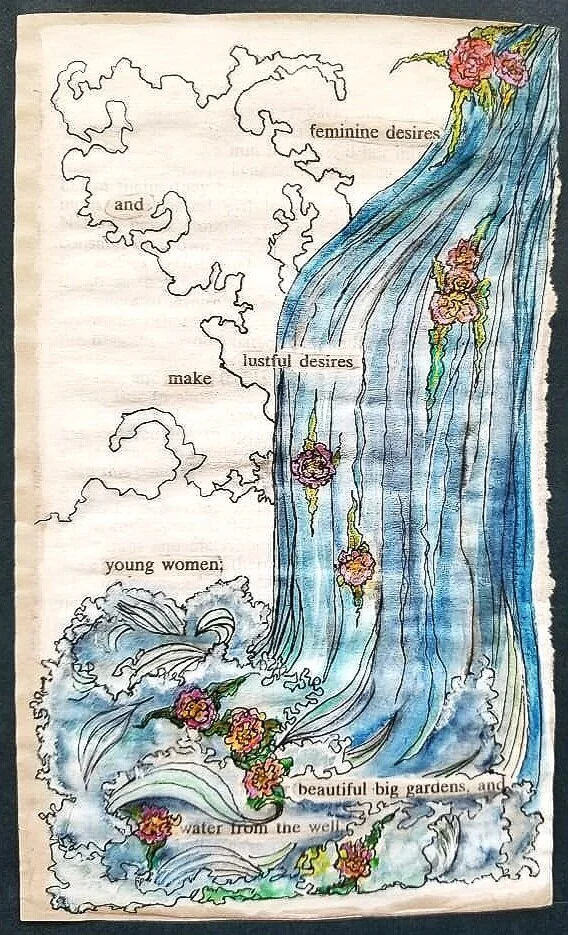 feminine desires
and
lustful desires
make
young women;
beautiful big gardens, and
water from the well,